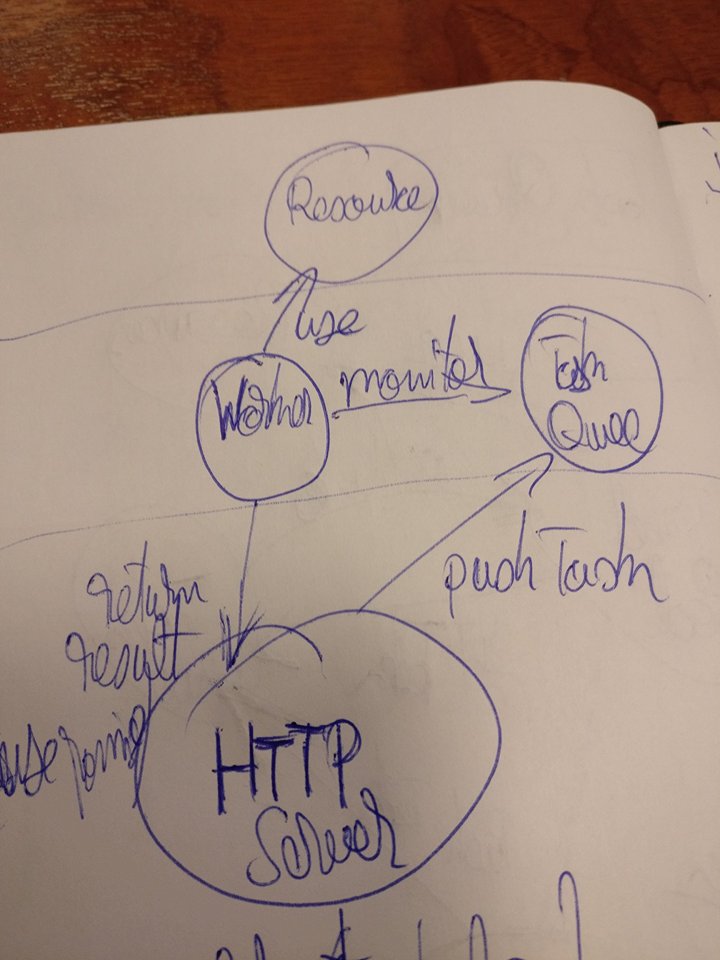 Resource
use
Worker
monitor
Task
Queue
push Task
return
result
use
HTTP
Server